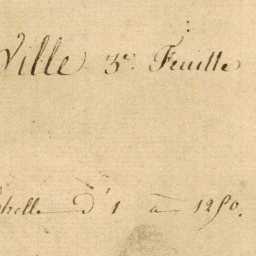 Ville 3e. Feuille
chelle d'1 à 1250.